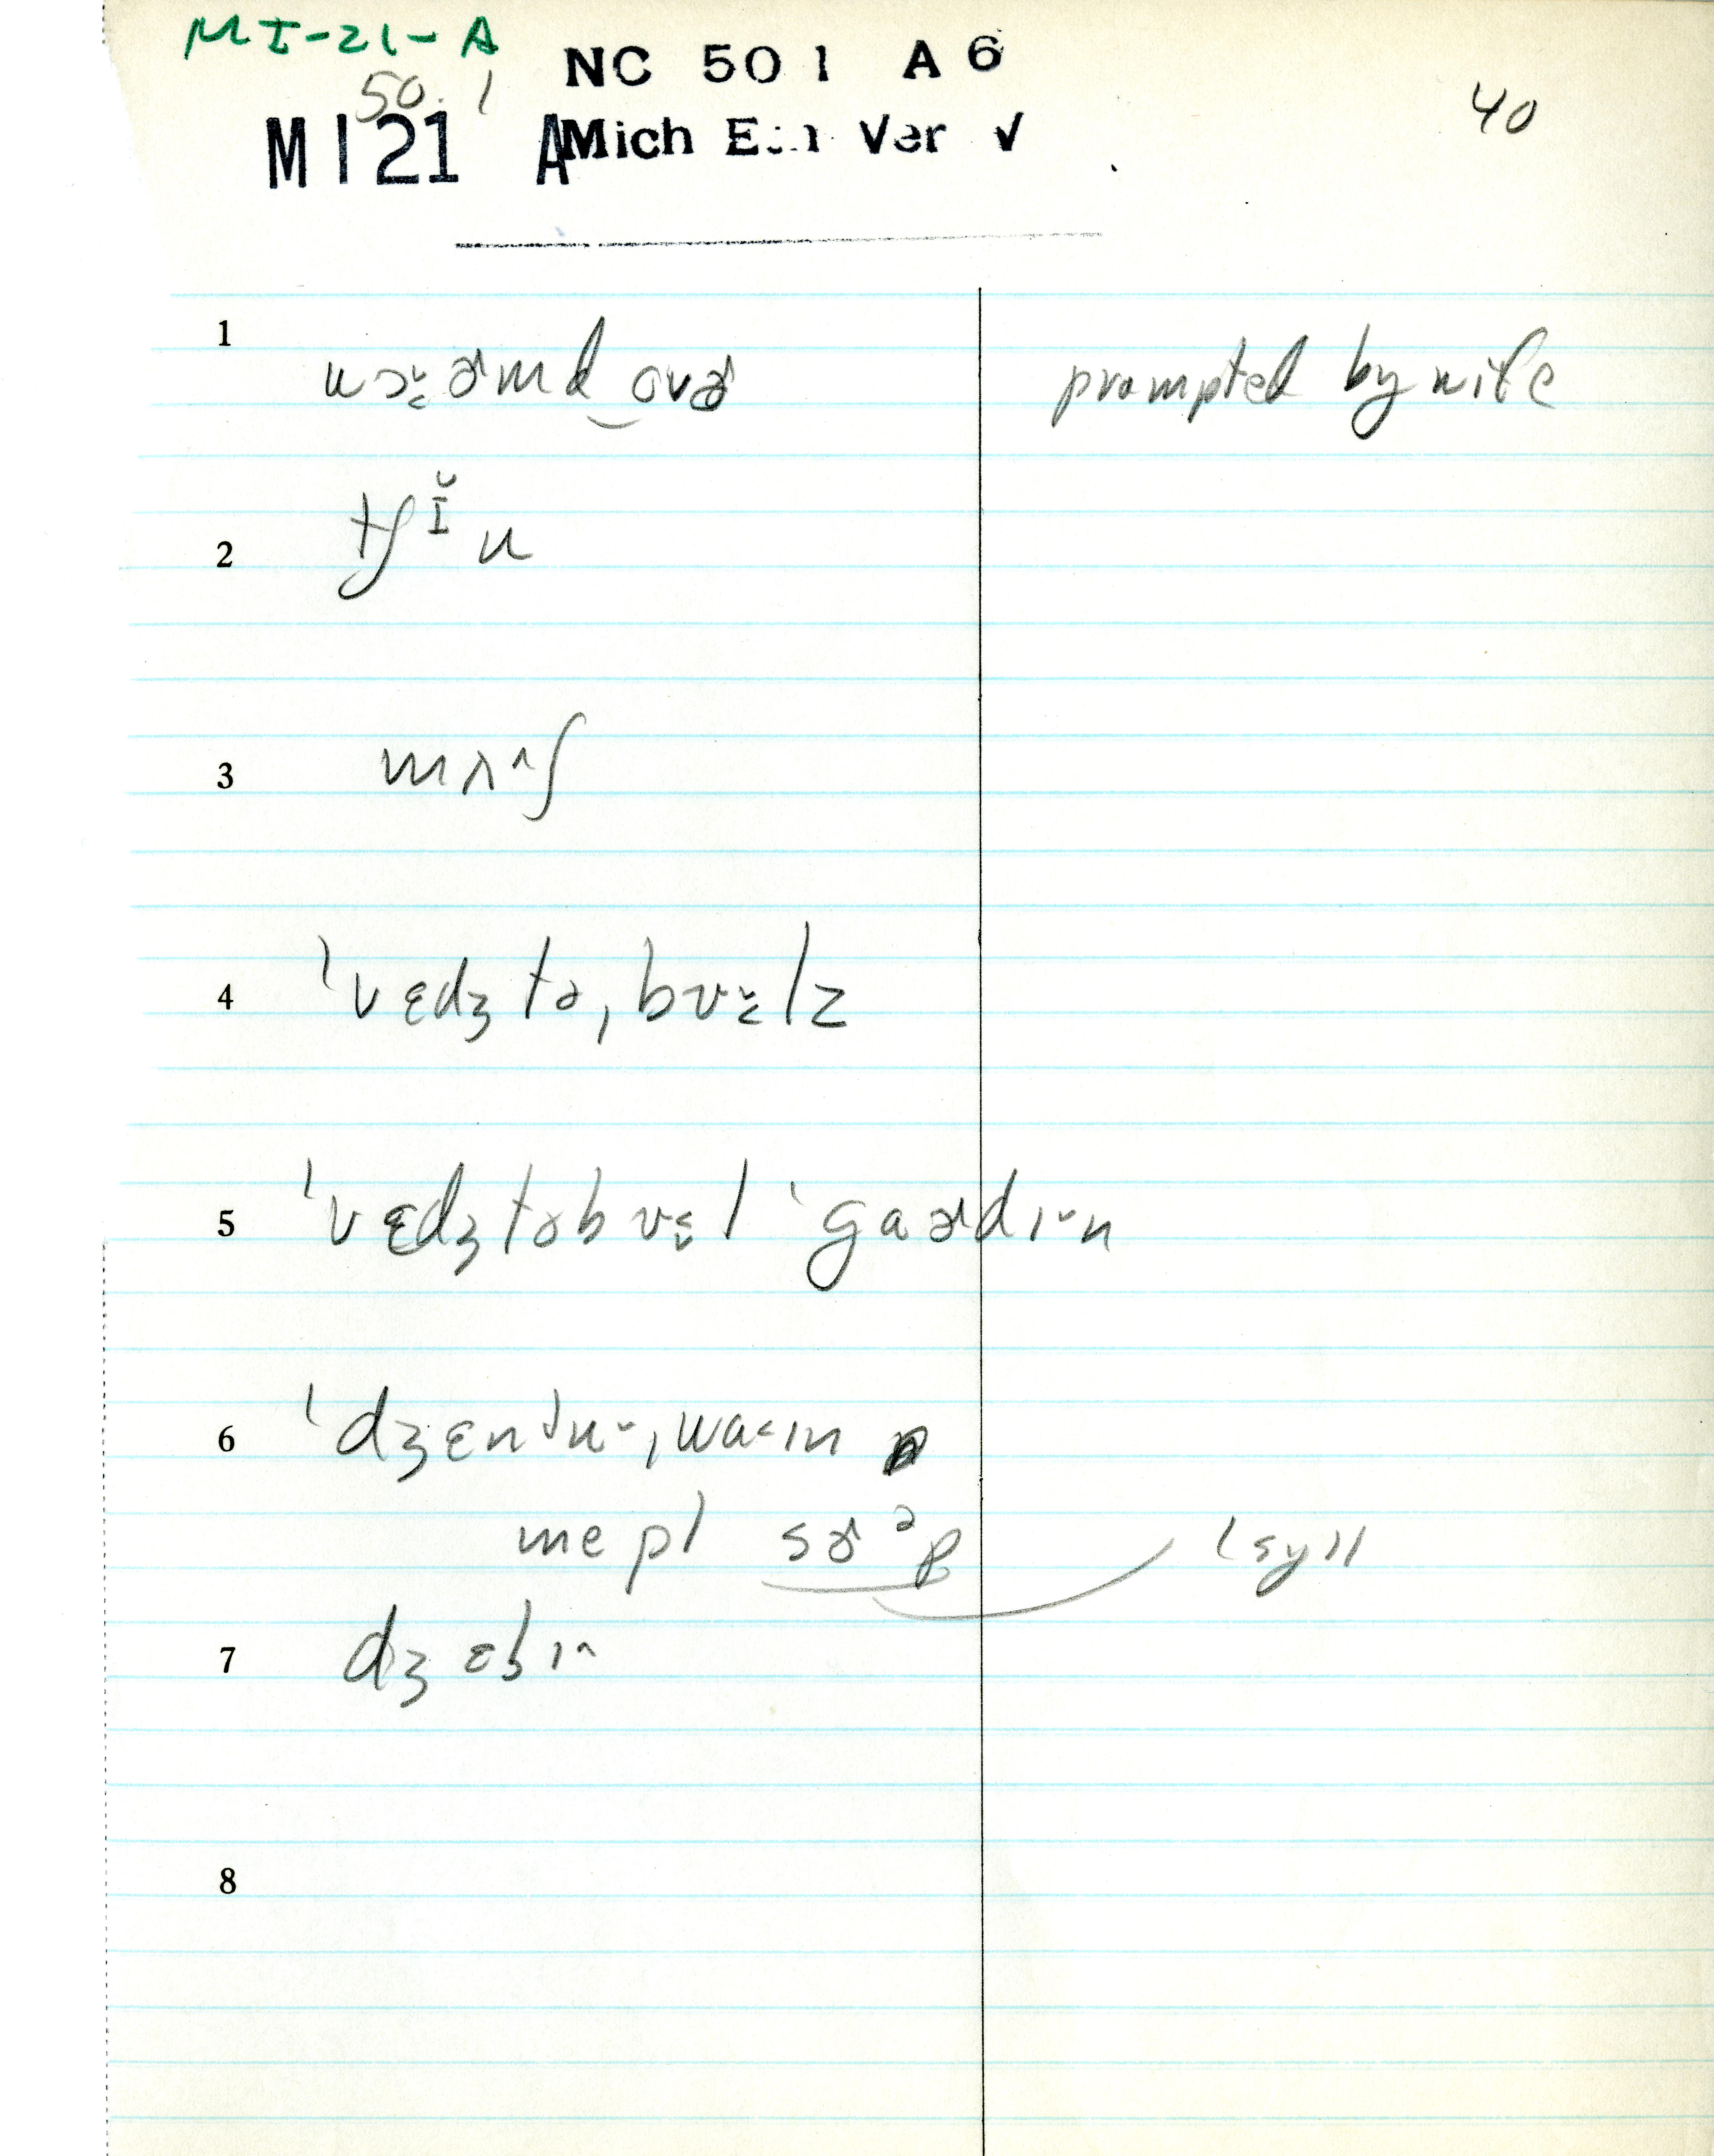 MI-21-A
NC 501 A6
50.1
40
MI21 A
Mich Ver √
1 wɔ˞ɚmd‿ovɚ prompted by wife
2 tʃɪ̆u
3 mʌ^ʃ
4 ˈvɛdʒtəˌbvɛ̆lz
5 ˈvɛdʒtəbvɛl ˈgaɚdɪ˘n
6 ˈdʒɛnɪu˘ˌwa˂ɪn
mepl sɚᵊp 1 syll
7 dʒɛlɪ^
8